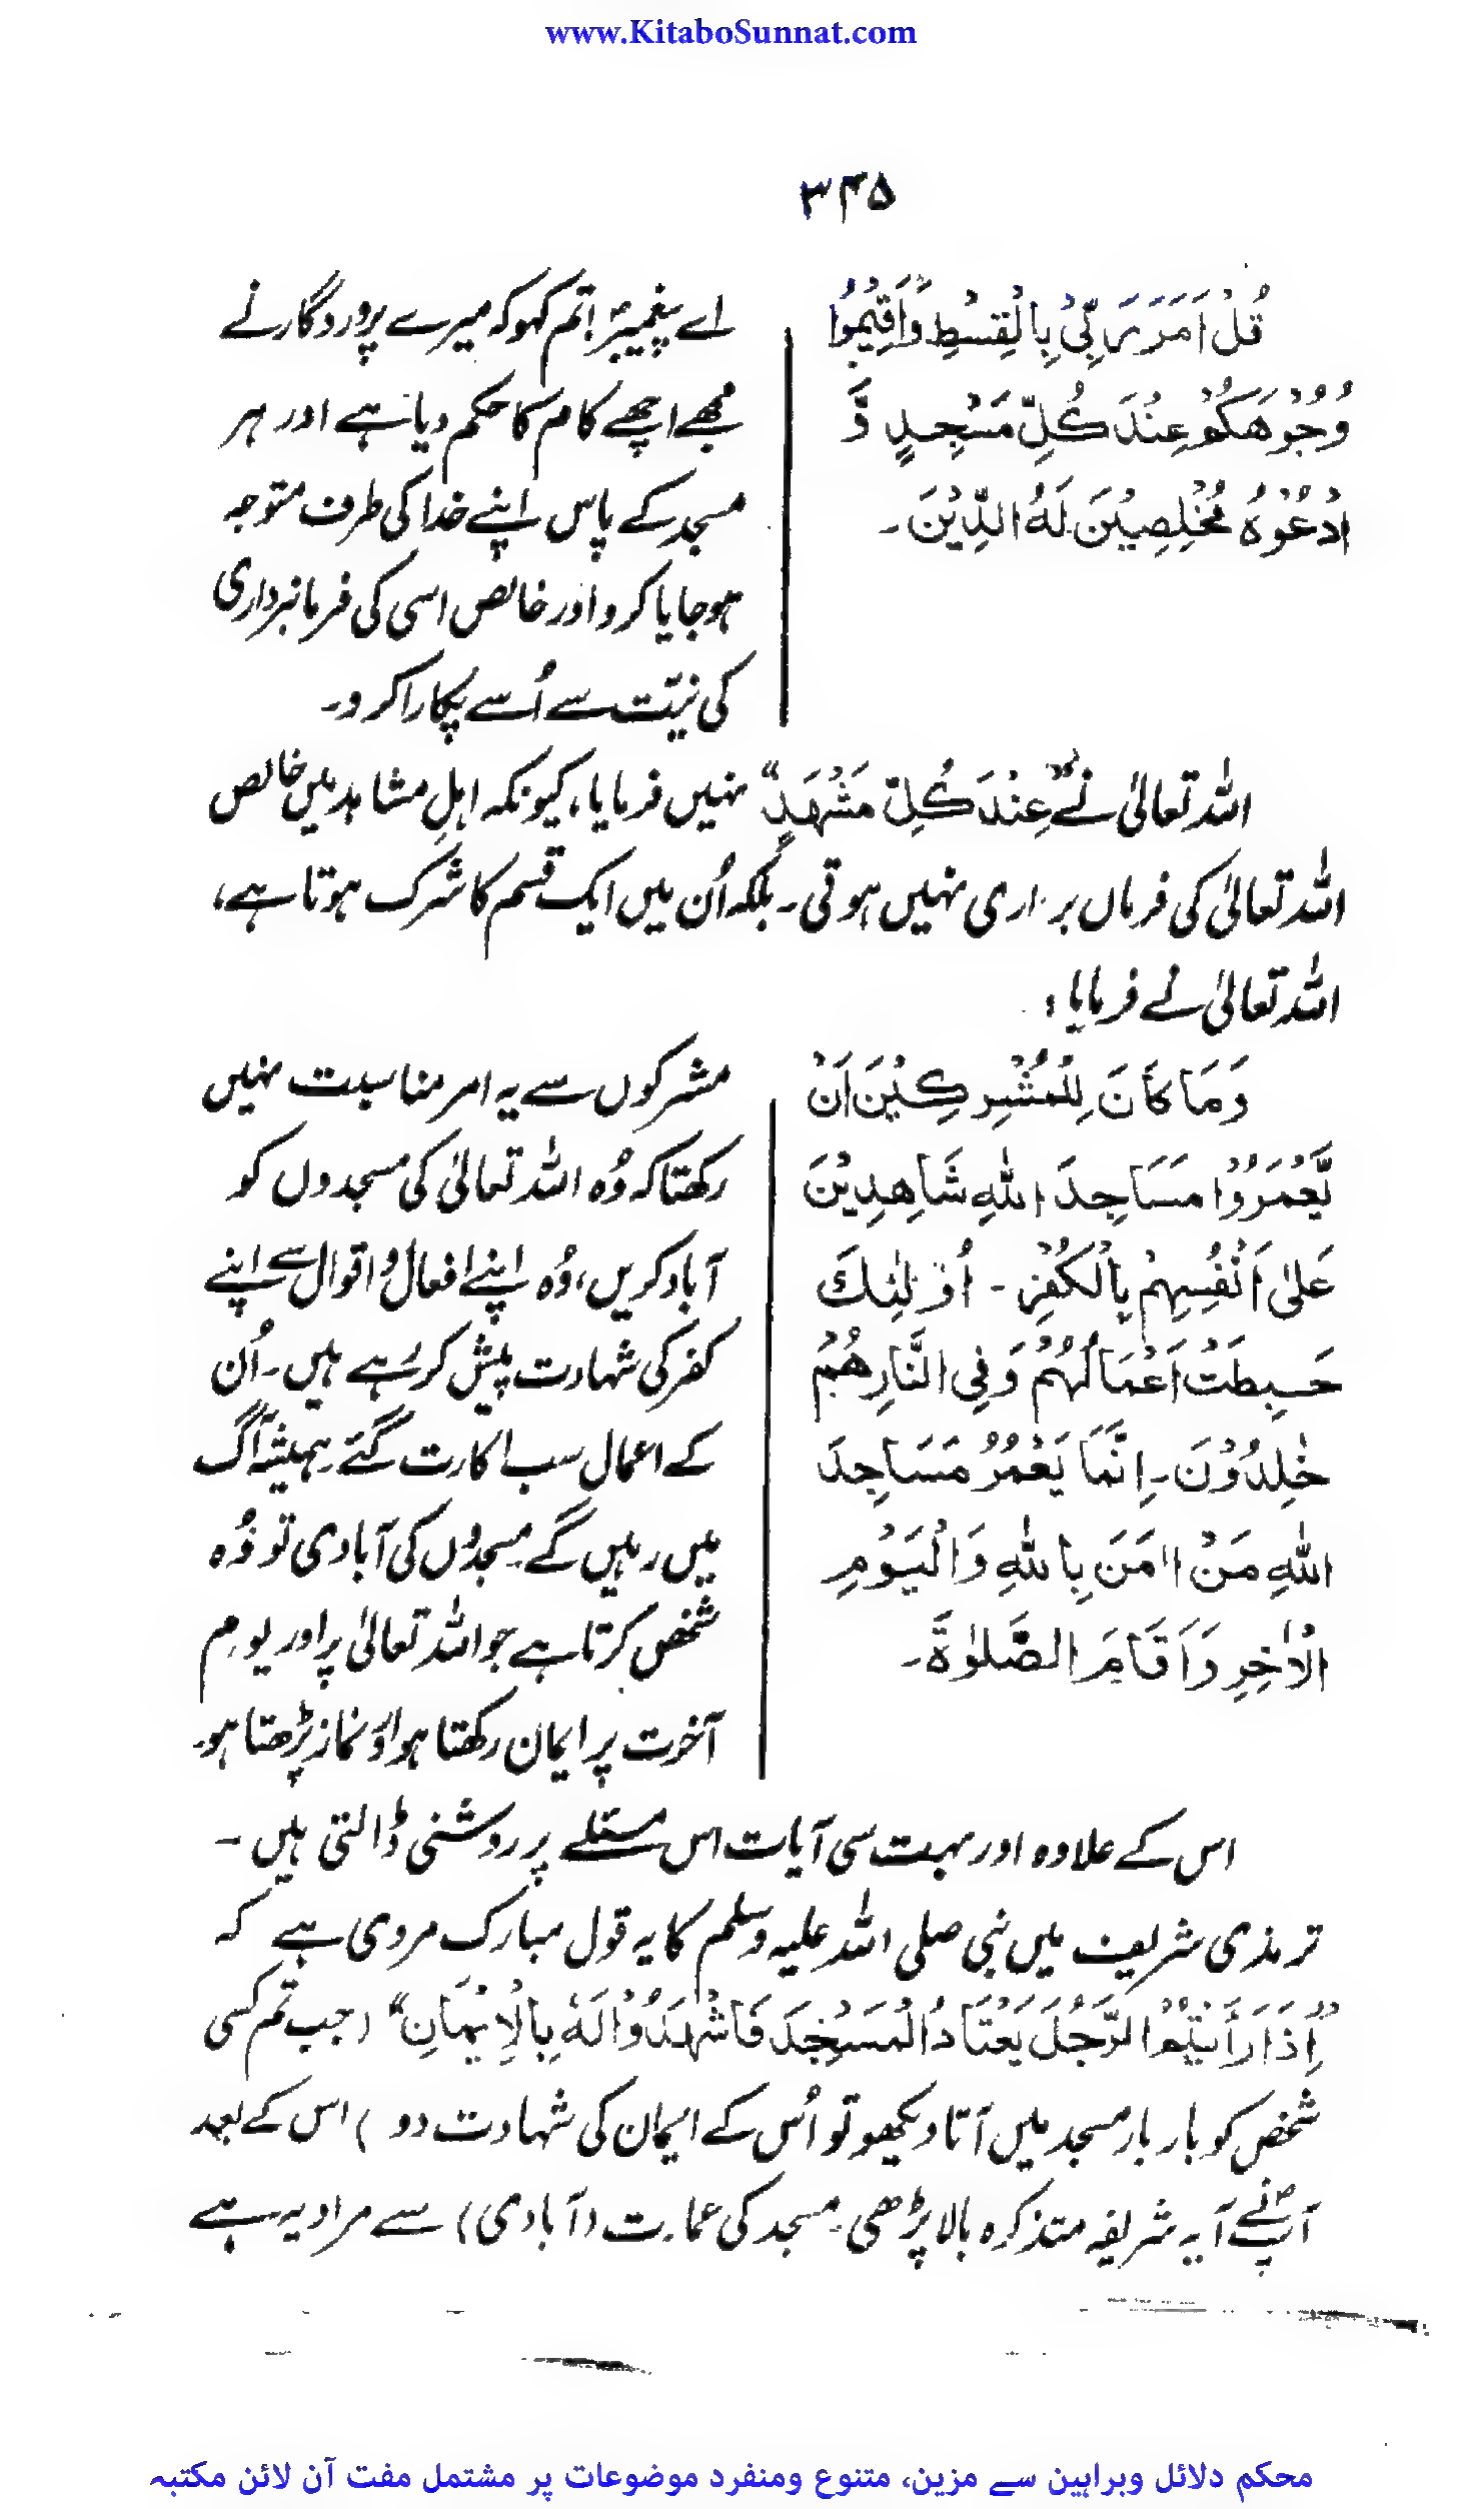 www.KitaboSunnat.com
۳۴۵
قُلْ اَمَرَ رَبِّیْ بِالْقِسْطِ وَاَقِیْمُوْا
وُجُوْهَكُمْ عِنْدَ كُلِّ مَسْجِدٍ وَّ
ادْعُوْهُ مُخْلِصِیْنَ لَهُ الدِّیْنَ۔
اے پیغمبرؐ! تم کہو کہ میرے پروردگار نے
مجھے اچھے کام کا حکم دیا ہے اور ہر
مسجد کے پاس اپنے خدا کی طرف متوجہ
ہوجایا کرو اور خالص اسی کی فرمانبرداری
کی نیّت سے اُسے پکارا کرو۔
اللہ تعالیٰ نے ”عِنْدَ كُلِّ مَشْهَدٍ“ نہیں فرمایا، کیونکہ اہلِ مشاہد میں خالص
اللہ تعالیٰ کی فرماں برداری نہیں ہوتی۔ بلکہ اُن میں ایک قسم کا شرک ہوتا ہے،
اللہ تعالیٰ نے فرمایا:
وَمَا كَانَ لِلْمُشْرِكِیْنَ اَنْ
یَّعْمُرُوْا مَسَاجِدَ اللهِ شَاهِدِیْنَ
عَلٰی اَنْفُسِهِمْ بِالْكُفْرِ۔ اُولٰئِكَ
حَبِطَتْ اَعْمَالُهُمْ وَفِی النَّارِ هُمْ
خٰلِدُوْنَ۔ اِنَّمَا یَعْمُرُ مَسَاجِدَ
اللهِ مَنْ اٰمَنَ بِاللهِ وَالْیَوْمِ
الْاٰخِرِ وَاَقَامَ الصَّلٰوةَ۔
مشرکوں سے یہ امر مناسبت نہیں
رکھتا کہ وُہ اللہ تعالیٰ کی مسجدوں کو
آباد کریں، وُہ اپنے افعال و اقوال سے اپنے
کفر کی شہادت پیش کر رہے ہیں۔ اُن
کے اعمال سب اکارت گئے۔ ہمیشہ آگ
میں رہیں گے۔ مسجدوں کی آبادی تو وُہ
شخص کرتا ہے جو اللہ تعالیٰ پر اور یوم
آخرت پر ایمان رکھتا ہو اور نماز پڑھتا ہو۔
اس کے علاوہ اور بہت سی آیات اس مسئلے پر روشنی ڈالتی ہیں۔
ترمذی شریف میں نبی صلی اللہ علیہ وسلم کا یہ قول مبارک مروی ہے کہ
”اِذَا رَاَیْتُمُ الرَّجُلَ یَعْتَادُ الْمَسْجِدَ فَاشْهَدُوْا لَهٗ بِالْاِیْمَانِ“ (جب تم کسی
شخص کو بار بار مسجد میں آتا دیکھو تو اُس کے ایمان کی شہادت دو) اس کے بعد
آپؐ نے آیہ شریفہ متذکرہ بالا پڑھی۔ مسجد کی عمارت (آبادی) سے مراد یہ ہے
محکم دلائل وبراہین سے مزین، متنوع ومنفرد موضوعات پر مشتمل مفت آن لائن مکتبہ